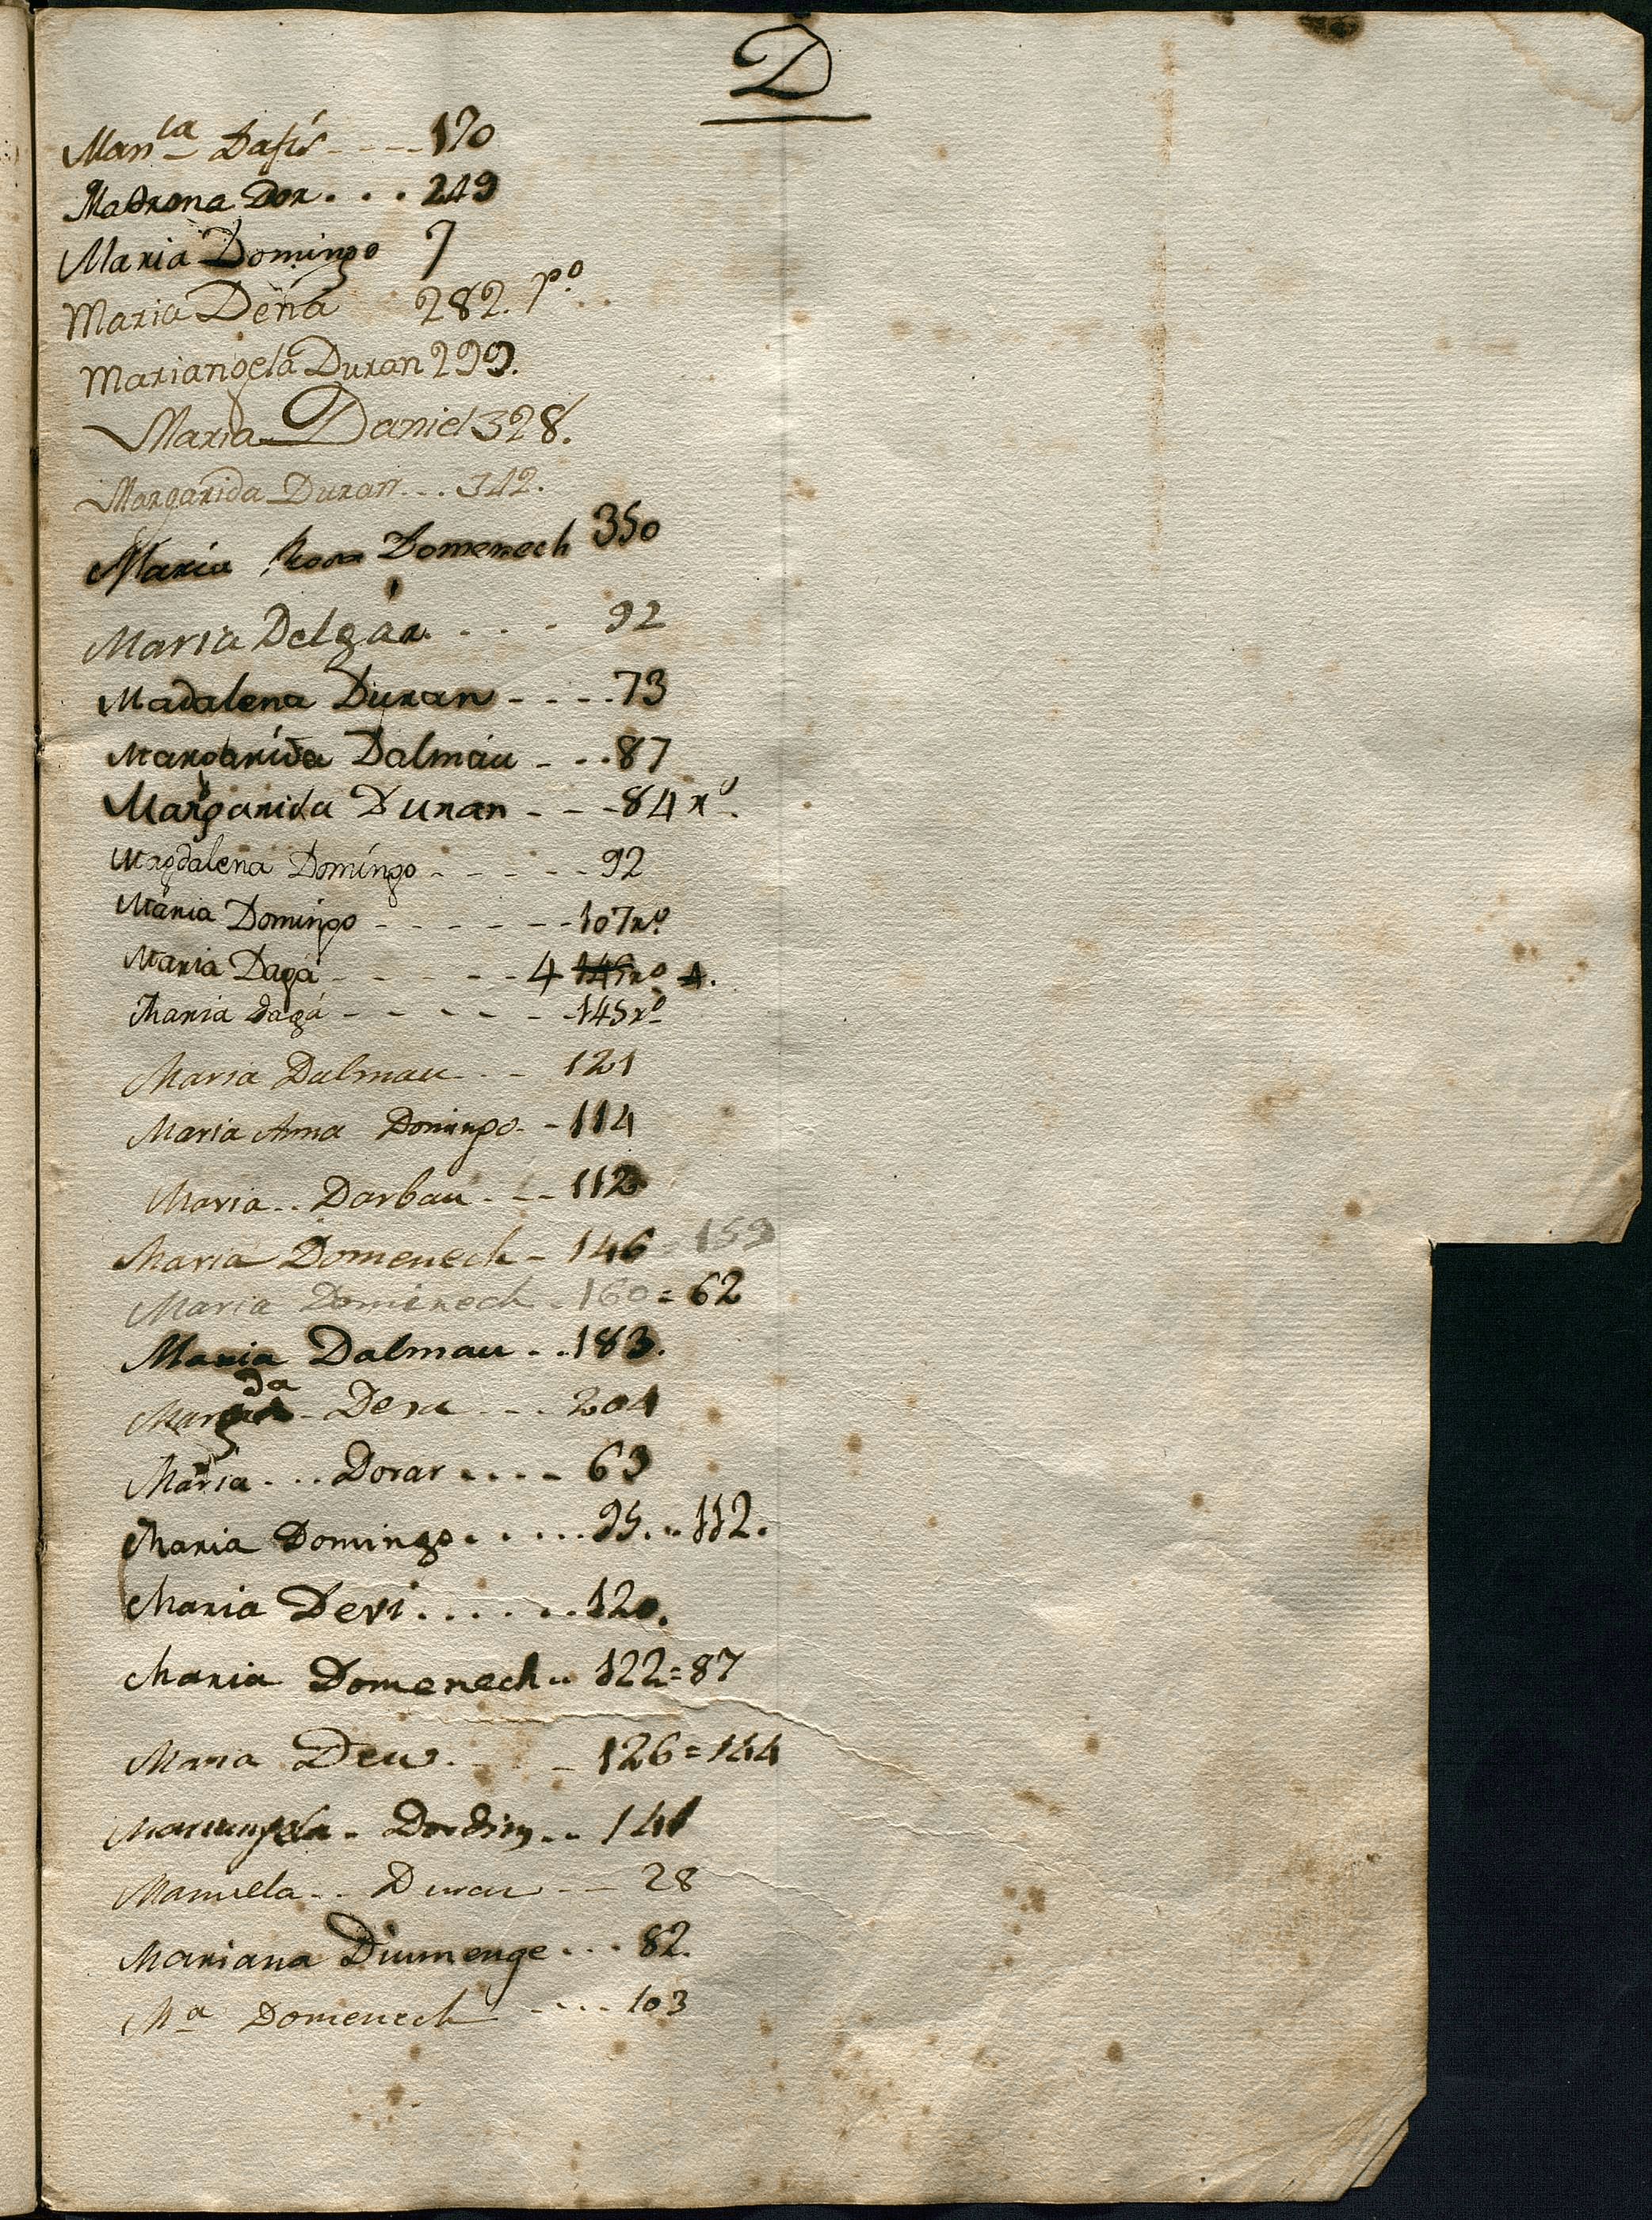 D
Man.la Dafis - - - - 170
Madrona Dor. . . . 249
Maria Domingo 7
Maria Dená 282. po
Mariangela Duran 299.
Maria Daniel 328.
Margarida Duran... 342.
Maria Rosa Domenech 350
Maria Delgár. . . - 92
Madalena Duran - - - . 73
Margarida Dalmáu - . . 87
Margarida Duran - - - 84 ro.
Magdalena Domingo - - - - - 92
Maria Domingo - - - - - - 107 ro.
Maria Dagá - - - - - - 4 145 ro 4.
Maria dagá - - - - - - 145 ro
Maria Dalmau - . - 121
Maria Anna Domingo - - 114
Maria . . Darbau . - - 112
Maria Domenech - 146 = 159
Maria Domenech . 160 = 62
Maria Dalmau . . 183.
Margda - Dera - - . 204
Maria . . . Dorar . . . - 63
Maria Domingo . . . . . 95. .. 112.
Maria Devi . . . . . . 120.
Maria Domenech .. 122 = 87
Maria Deu . - - 126 = 144
Mariangela . . 141
Manuela . . Duran - - 28
Mariana Diumenge . . . 82.
Ma Domenech - . . . 103